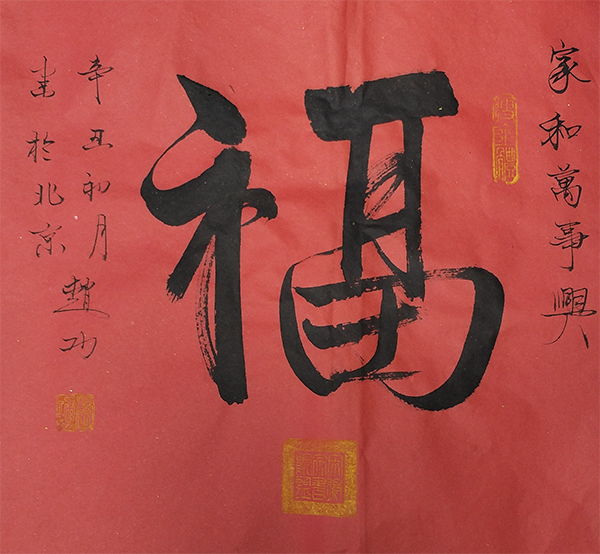 家和萬事興
福
辛丑初月趙
於北京